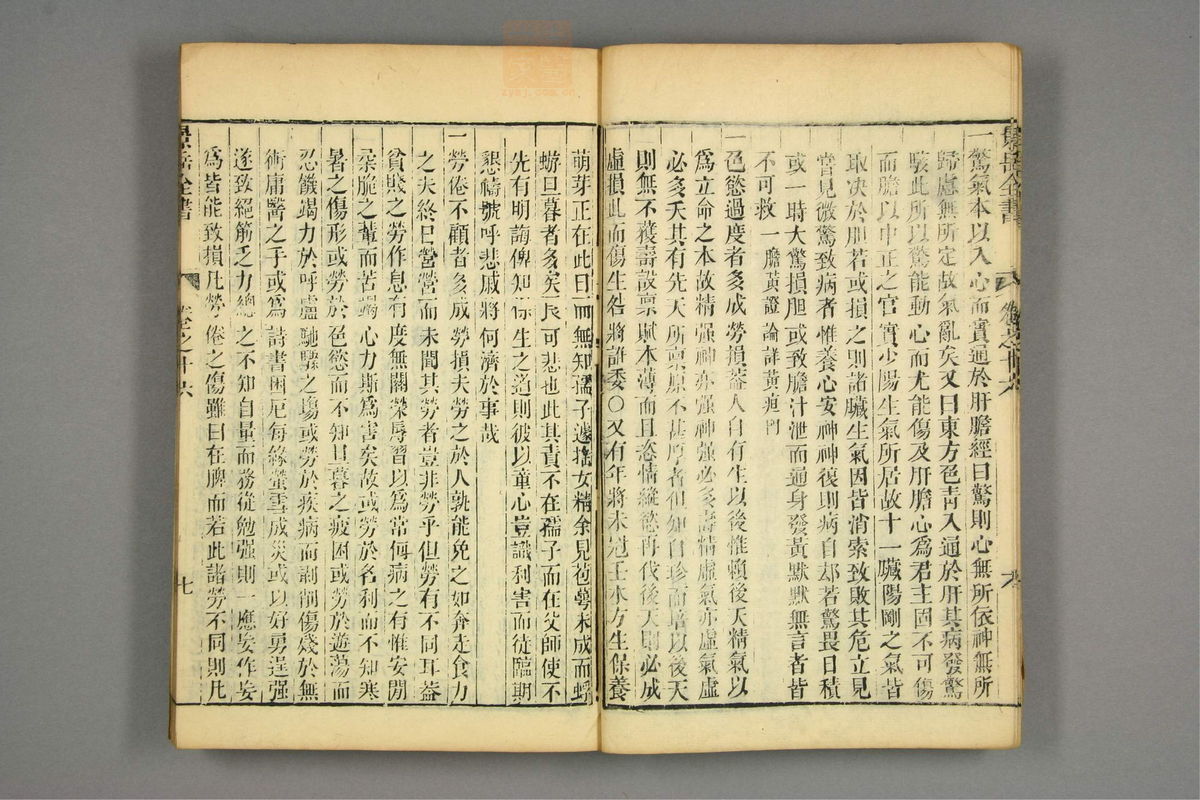 景岳全書
卷之十六
一驚氣本以入心而實通於肝膽經曰驚則心無所依神無所
歸慮無所定故氣亂矣又曰東方色青入通於肝其病發驚
駭此所以驚能動心而尤能傷及肝膽心為君主固不可傷
而膽以中正之官實少陽生氣所居故十一臟陽剛之氣皆
取決於胆若或損之則諸臟生氣因皆消索致敗其危立見
嘗見微驚致病者惟養心安神神復則病自却若驚畏日積
或一時大驚損胆或致膽汁泄而通身發黃默默無言者皆
不可救一膽黃證論詳黃疸門
一色慾過度者多成勞損蓋人自有生以後惟賴後天精氣以
為立命之本故精强神亦强神强必多壽精虛氣亦虛氣虛
必多夭其有先天所禀原不甚厚者但知自珍而培以後天
則無不獲壽設禀賦本薄而且恣情縱慾再伐後天則必成
虛損此而傷生咎將誰委○又有年將未冠壬水方生保養
萌芽正在此日而無知孺子遽搖女精余見苞萼未成而蜉
蝣旦暮者多矣良可悲也此其責不在孺子而在父師使不
先有明誨俾知保生之道則彼以童心豈識利害而徒臨期
懇禱號呼悲戚將何濟於事哉
一勞倦不顧者多成勞損夫勞之於人孰能免之如奔走食力
之夫終日營營而未聞其勞者豈非勞乎但勞有不同耳蓋
貧賤之勞作息有度無關榮辱習以為常何病之有惟安閒
柔脆之輩而苦竭心力斯為害矣故或勞於名利而不知寒
暑之傷形或勞於色慾而不知旦暮之疲困或勞於遊蕩而
忍饑竭力於呼盧馳驟之塲或勞於疾病而剥削傷殘於無
術庸醫之手或為詩書困厄每緣螢雪成災或以好勇逞强
遂致絕筋乏力總之不知自量而務從勉强則一應妄作妄
為皆能致損凡勞倦之傷雖曰在脾而若此諸勞不同則凡
景岳全書
卷之十六
七